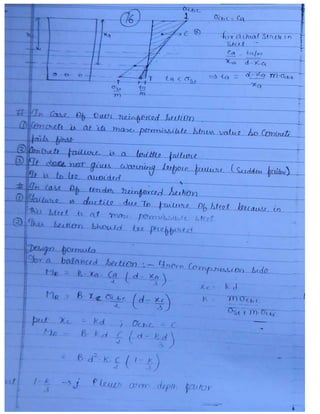 76
σcbc
σcbc = Ca
xa
xa
for actual stress in
steel
Ca = ta/m
xa d-xa
ta < σst ⇒ ta = d-xa m.Ca
xa
σst ta
m m
# In Case of Over reinforced Section
① Concrete is at its max permissible stress value so Concrete
fails first
② Concrete failure is a brittle failure
③ It does not gives warning before failure (Sudden failure)
It is to be avoided
# In case of Under reinforced Section
① Failure is ductile due to failure of Steel because in
this steel is at max permissible
② This section should be preffered
Design formula
For a balanced section :- from Compression side
MR = B. xa. Ca/2 (d - xa/3)
xc = kd
MR = B. xc σcbc/2 (d - xc/3)
k = mσcbc
σst + mσcbc
put xc = kd ; σcbc = C
MR = B. kd C/2 (d - kd/3)
= B d². k C/2 (1 - k/3)
1 - k/3 → j lever arm depth factor